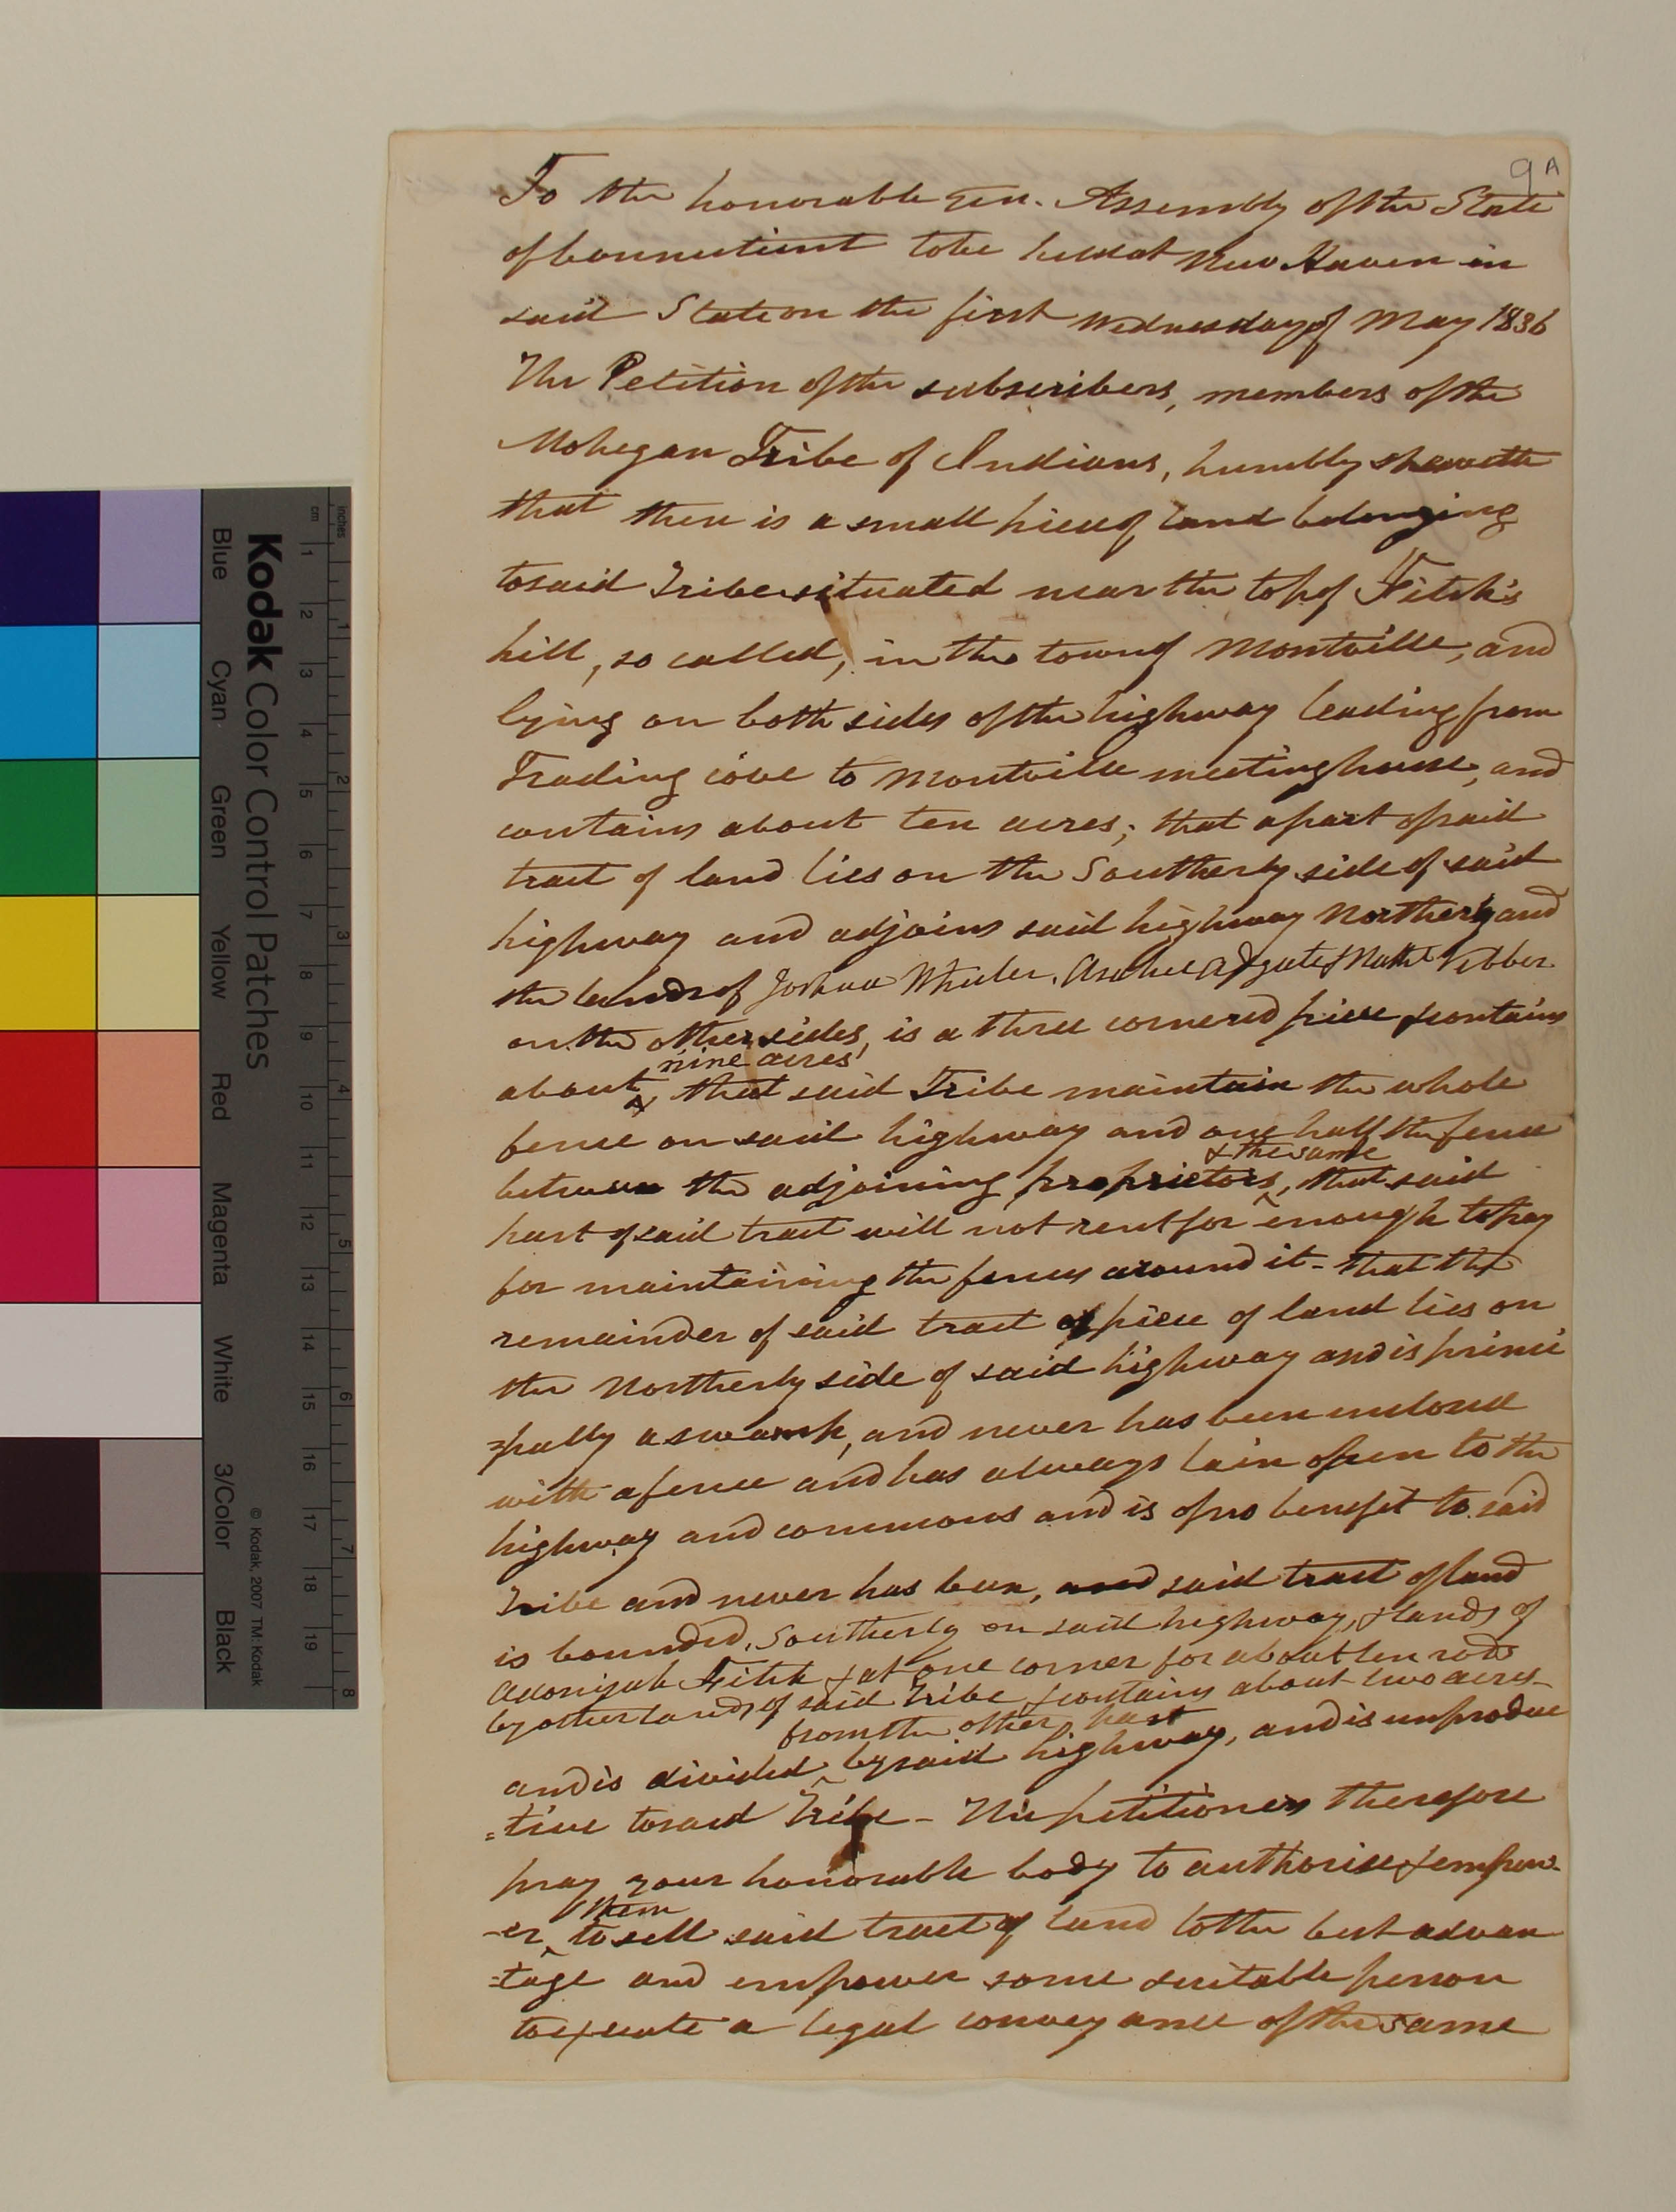 9 A
To the honorable Gen. Assembly of the State
of Connecticut to be held at New Haven in
said State on the first Wednesday of May 1836
The Petition of the subscribers, members of the
Mohegan Tribe of Indians, humbly sheweth
that there is a small piece of land belonging
to said Tribe situated near the top of Fitch's
hill, so called, in the town of Montville, and
lying on both sides of the highway leading from
Trading cove to Montville meeting house, and
contains about ten acres; that a part of said
tract of land lies on the Southerly side of said
highway and adjoins said highway Northerly and
the lands of Joshua Wheeler, Asahel Adgate & Nathl Vibber
on the other sides, is a three cornered piece & contains
nine acres
about that said Tribe maintain the whole
fence on said highway and one half the fence
& the same
between the adjoining proprietors, that said
part of said tract will not rent for enough to pay
for maintaining the fences around it - that the
remainder of said tract or piece of land lies on
the Northerly side of said highway and is princi
=pally a swamp, and never has been inclosed
with a fence and has always lain open to the
highway and commons and is of no benefit to said
Tribe and never has been, and said tract of land
is bounded, Southerly on said highway, & lands of
Adonijah Fitch & at one corner for about ten rods
by other lands of said Tribe & contains about two acres -
from the other part
and is divided by said highway, and is unproduc
=tive to said Tribe - The petitioners therefore
pray your honorable body to authorise & empow-
them
-er to sell said tract of land to the best advan
=tage and empower some suitable person
to execute a legal conveyance of the same
inches
cm
1 2 3 4 5 6 7 8 9 10 11 12 13 14 15 16 17 18 19
1 2 3 4 5 6 7 8
Kodak Color Control Patches
© Kodak, 2007 TM: Kodak
Blue Cyan Green Yellow Red Magenta White 3/Color Black